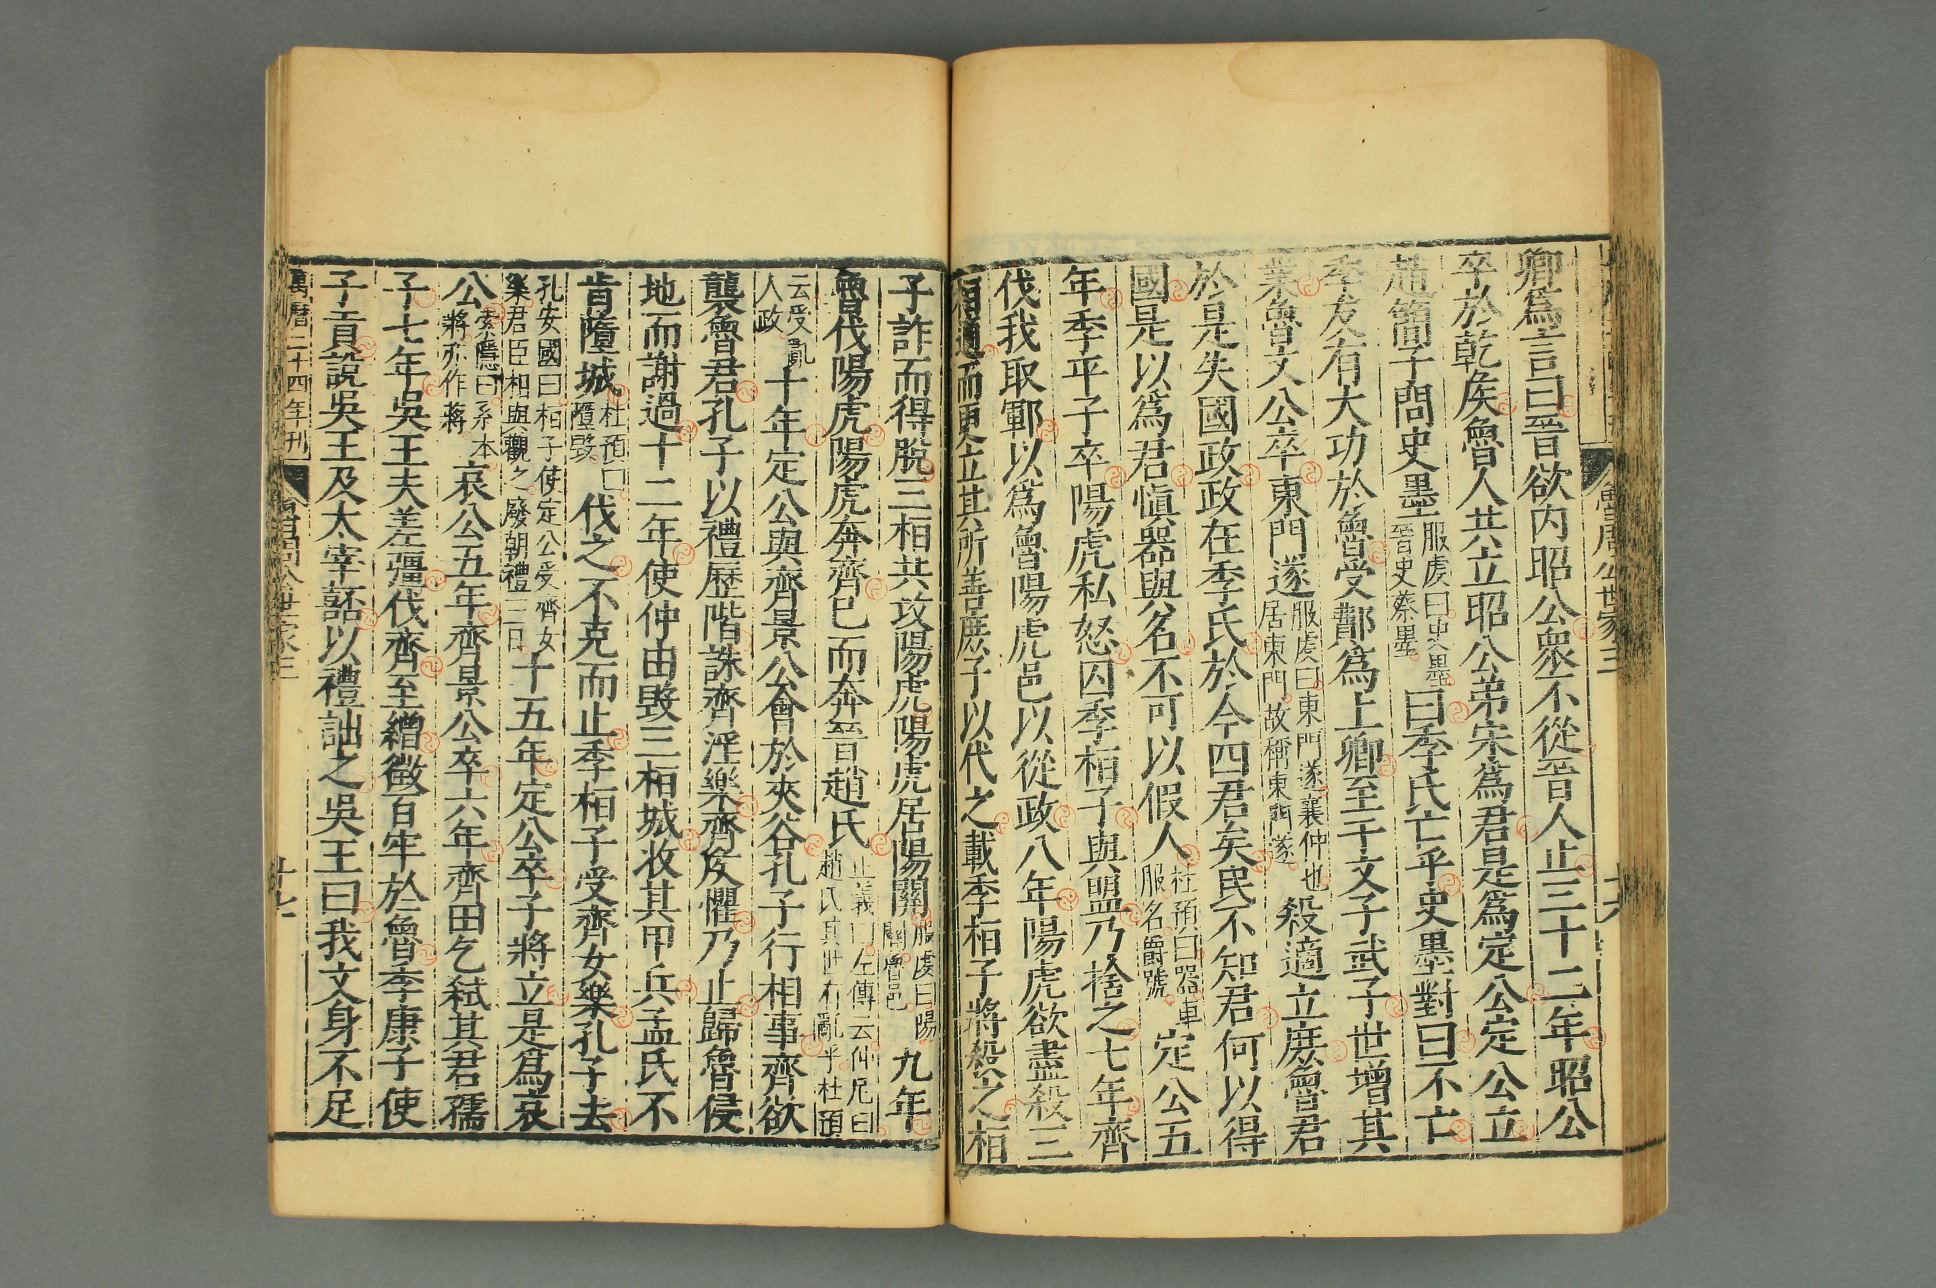 卿爲言曰晉欲內昭公衆不從晉人止三十二年昭公
卒於乾侯魯人共立昭公弟宋爲君是爲定公定公立
趙簡子問史墨服虔曰史墨晉史蔡墨曰季氏亡乎史墨對曰不亡
季友有大功於魯受鄪爲上卿至于文子武子世增其
業魯文公卒東門遂服虔曰東門遂襄仲也居東門故稱東門遂殺適立庶魯君
於是失國政政在季氏於今四君矣民不知君何以得
國是以爲君慎器與名不可以假人杜預曰器車服名爵號定公五
年季平子卒陽虎私怒囚季桓子與盟乃捨之七年齊
伐我取鄆以爲魯陽虎邑以從政八年陽虎欲盡殺三
桓適而更立其所善庶子以代之載季桓子將殺之桓
魯周公世家三
十六
子詐而得脫三桓共攻陽虎陽虎居陽關服虔曰陽關魯邑九年
魯伐陽虎陽虎奔齊已而奔晉趙氏正義曰左傳云仲尼曰趙氏其世有亂乎杜預
云受亂人政十年定公與齊景公會於夾谷孔子行相事齊欲
襲魯君孔子以禮歷階誅齊淫樂齊侯懼乃止歸魯侵
地而謝過十二年使仲由毀三桓城收其甲兵孟氏不
肯墮城杜預曰墮毀伐之不克而止季桓子受齊女樂孔子去
孔安國曰桓子使定公受齊女樂君臣相與觀之廢朝禮三日十五年定公卒子將立是爲哀
公索隱曰系本將亦作蔣哀公五年齊景公卒六年齊田乞弒其君孺
子七年吳王夫差彊伐齊至繒徵百牢於魯季康子使
子貢說吳王及太宰嚭以禮詘之吳王曰我文身不足
萬曆二十四年刊
魯周公世家三
十七